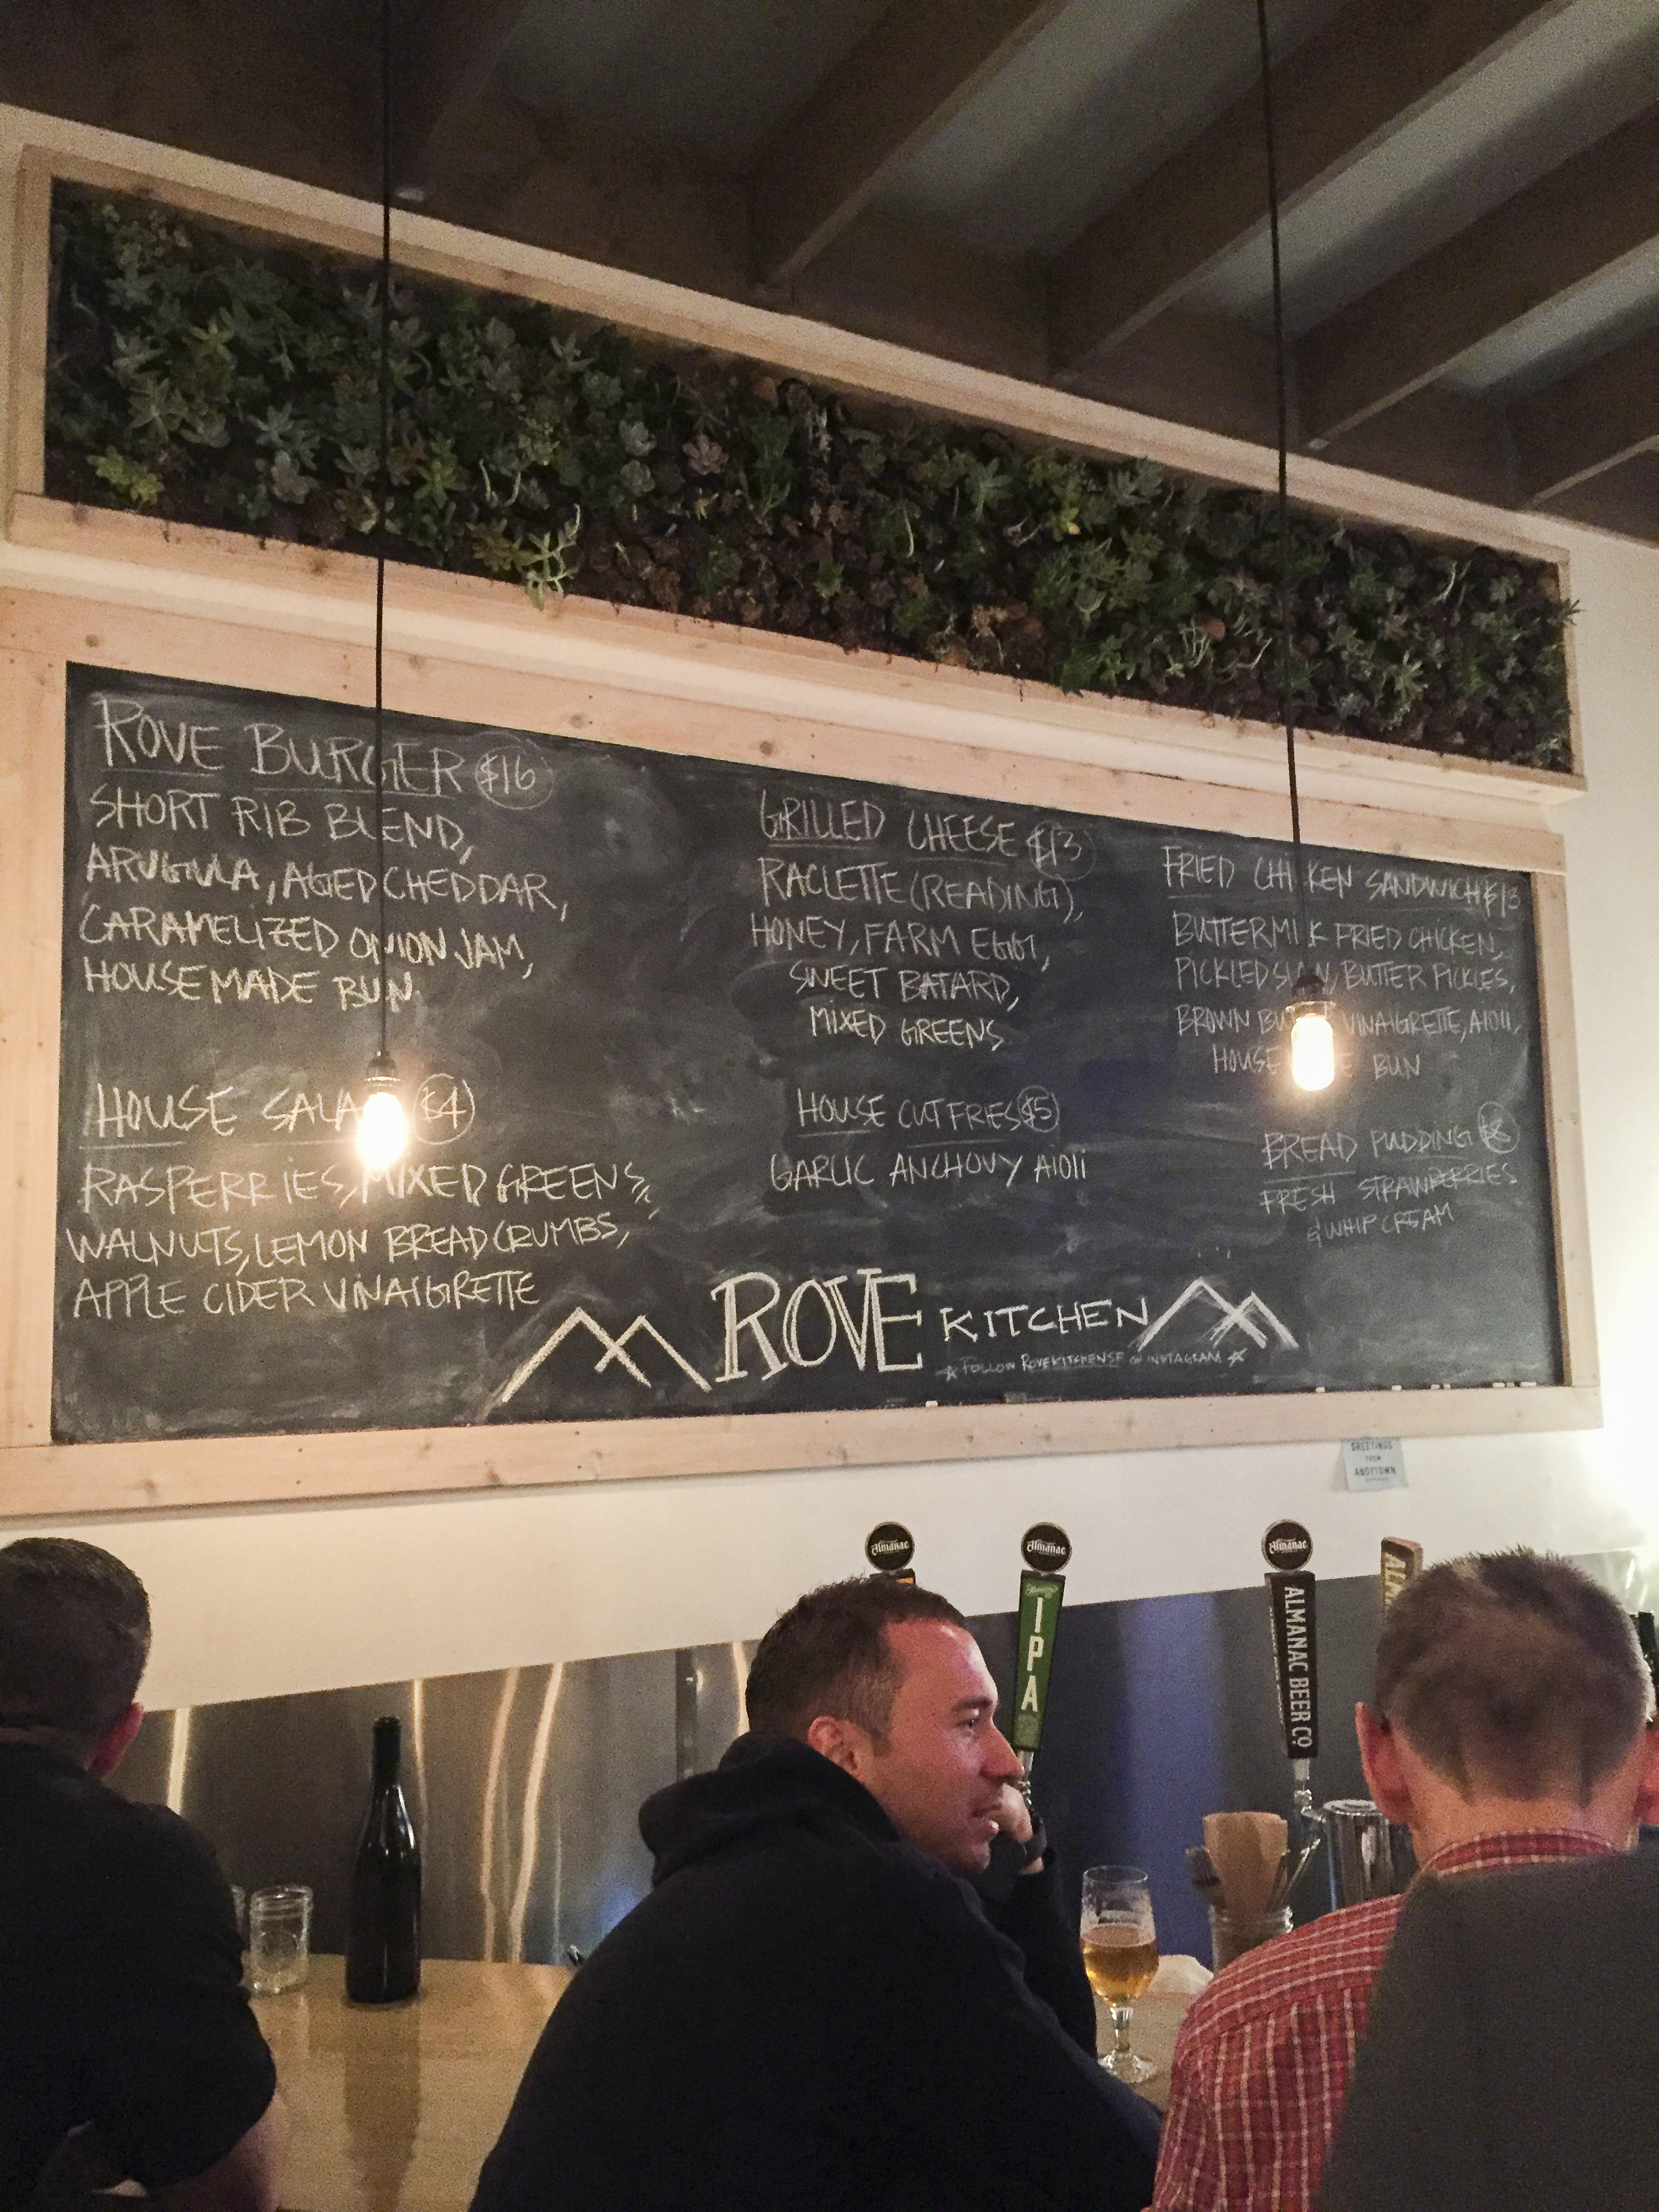 ROVE BURGER $16
SHORT RIB BLEND,
ARUGULA, AGED CHEDDAR,
CARAMELIZED ONION JAM,
HOUSEMADE BUN
HOUSE $4
RASPERRIES, MIXED GREENS,
WALNUTS, LEMON BREADCRUMBS,
APPLE CIDER VINAIGRETTE
GRILLED CHEESE $13
RACLETTE (READING),
HONEY, FARM EGG,
SWEET BATARD,
MIXED GREENS
HOUSE CUT FRIES $5
GARLIC ANCHOVY AIOLI
FRIED CHICKEN SANDWICH $13
BUTTERMILK FRIED CHICKEN,
PICKLED BUTTER PICKLES,
BROWN VINAIGRETTE, AIOLI,
HOUSE BUN
BREAD PUDDING
FRESH STRAWBERRIES
& WHIP CREAM
ROVE KITCHEN
FOLLOW ROVEKITCHENSF ON INSTAGRAM
GREETINGS
FROM
ANDYTOWN
Almanac
Almanac
IPA
Almanac
ALMANAC BEER CO.